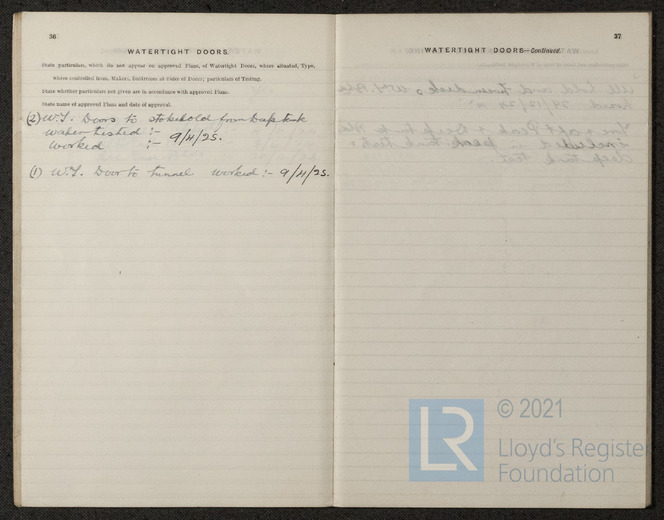 36
WATERTIGHT DOORS
State particulars, which do not appear on approved Plans, of Watertight Doors, where situated, Type,
where controlled from, Makers, thickness at sides of Doors; particulars of Testing.
State whether particulars not given are in accordance with approved Plans.
State name of approved Plans and date of approval.
(2) W.T. Doors to stokehold from Deep tank
water tested :- 9/4/25.
worked :-
(1) W.T. Door to tunnel worked :- 9/4/25.
37
WATERTIGHT DOORS—Continued.
LR
© 2021
Lloyd's Register
Foundation